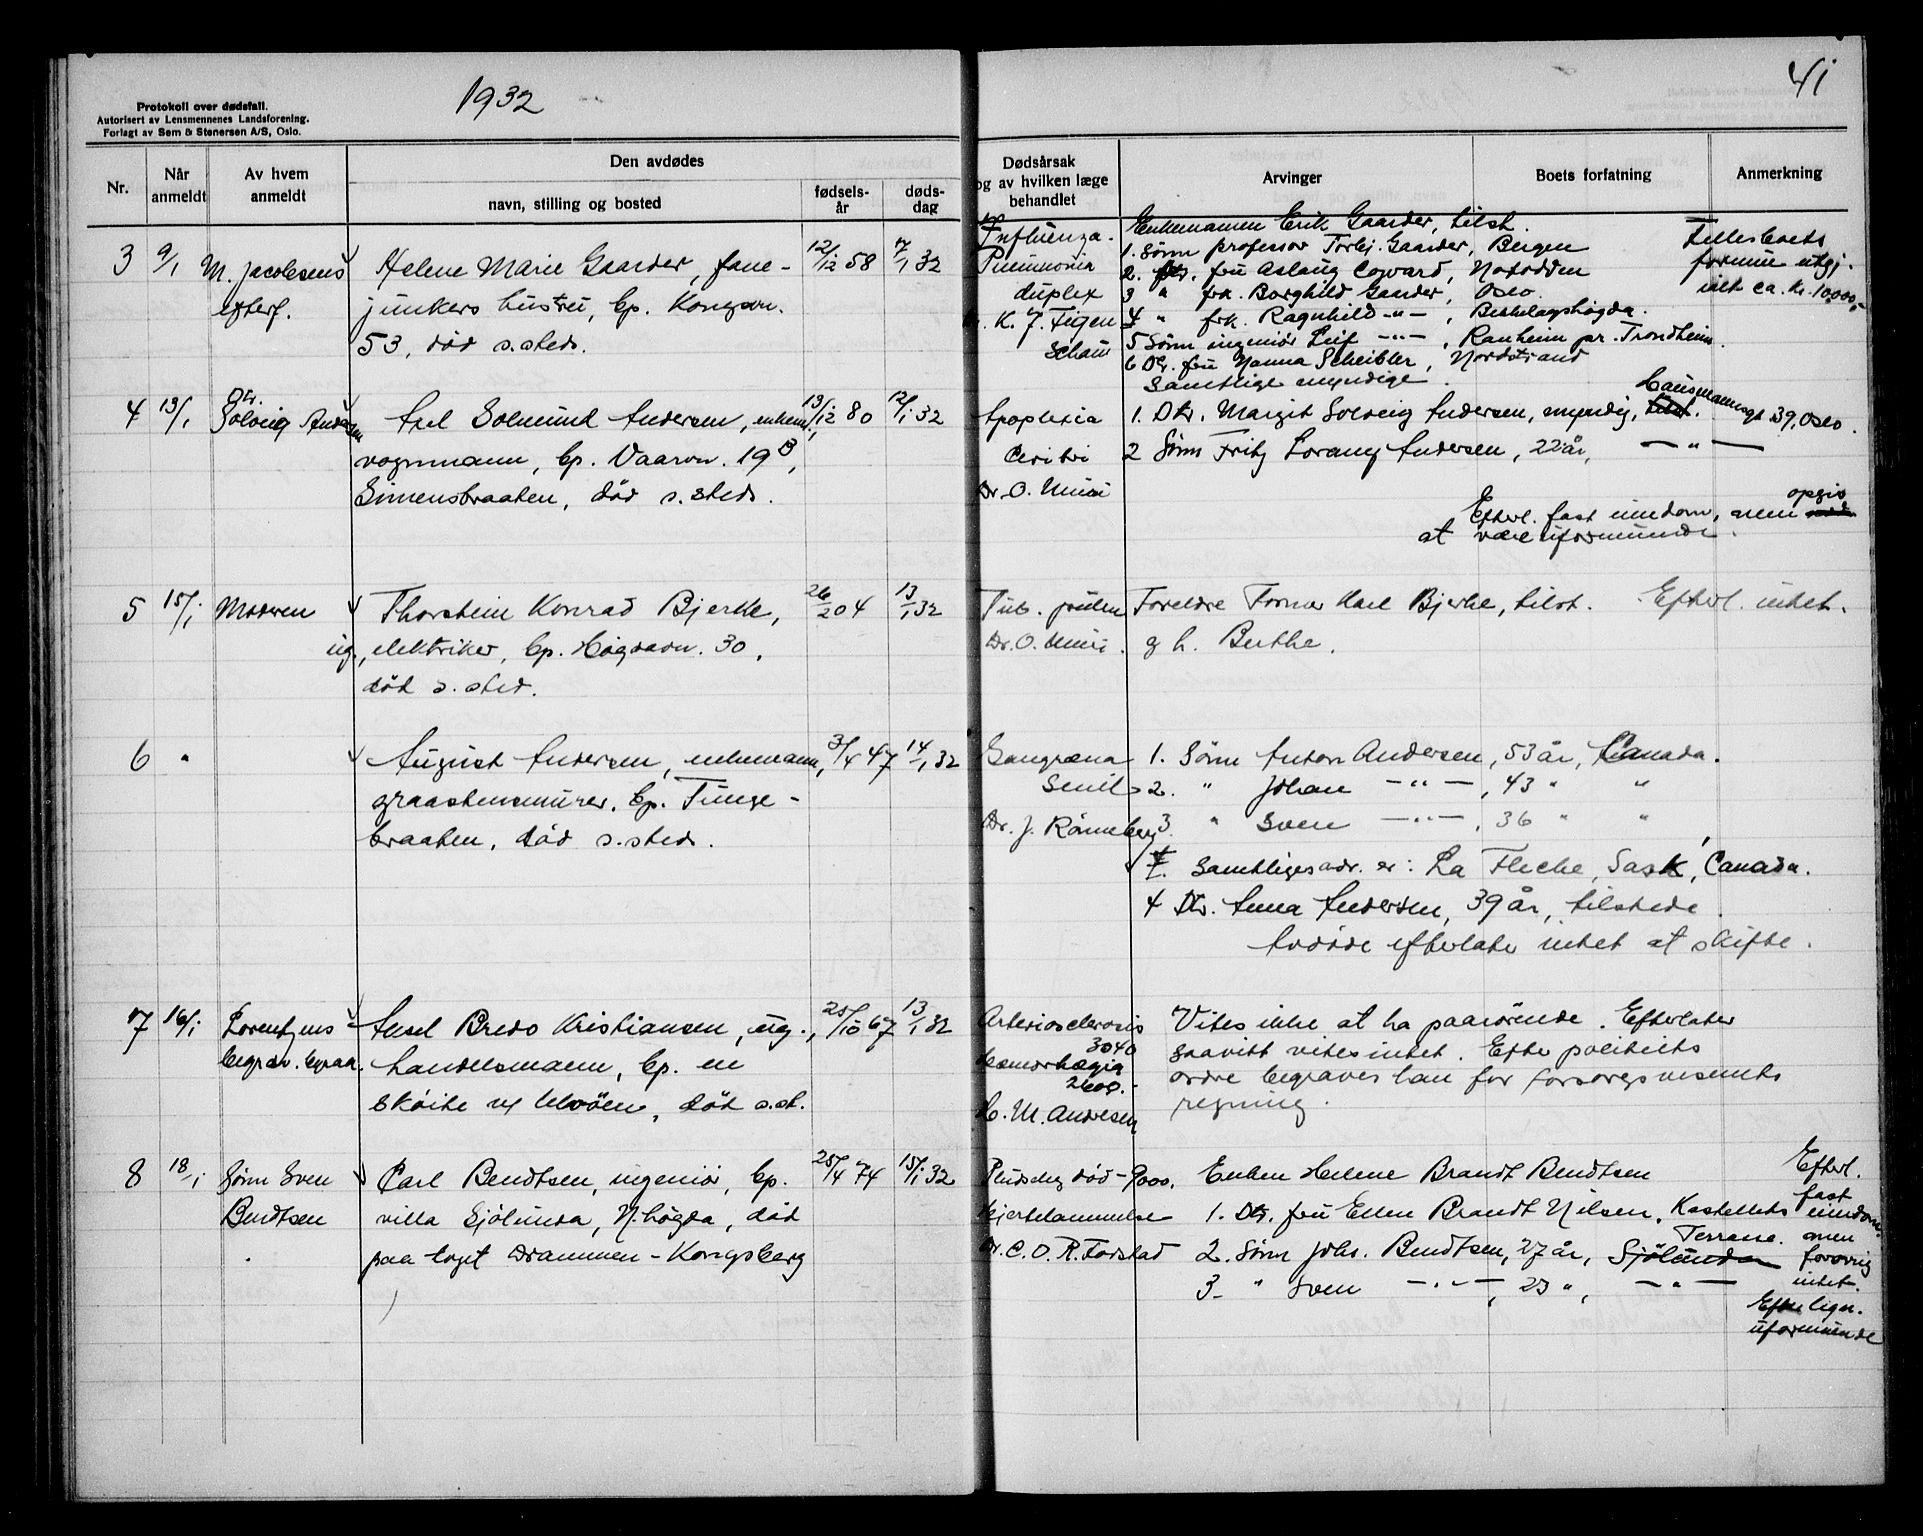 1932
41
Protokoll over dødsfall.
Autorisert av Lensmennenes Landsforening.
Forlagt av Sem & Stenersen A/S, Oslo.
Nr.
Når anmeldt
Av hvem anmeldt
Den avdødes
navn, stilling og bosted
fødsels-år
døds-dag
Dødsårsak og av hvilken læge behandlet
Arvinger
Boets forfatning
Anmerkning
3 9/1 M. Jacobsens Helene Marie Gaarder, fane- 12/12 58 7/1 32
efterf. junkers hustru, bp. Kongsv.
53, død s.steds.
Influenza.
Pneumonia
duplex
K. J. Figen
Schou
Enkemannen Erik Gaarder, tilst.
1. Sønn professor Torbj. Gaarder, Bergen
2. Dtr. fru Aslaug Coward, Notodden
3 " frk. Borghild Gaarder, Oslo
4 " frk. Ragnhild -"-, Bekkelagshøgda.
5 Sønn ingeniør Leif -"-, Ranheim pr. Trondheim.
6 Dtr. fru Nanna Scheibler, Nordstrand
Samtlige myndige.
Fellesboets
formue utgj.
ca. kr. 10000,-
4 13/1 Dtr. Solveig Andersen Axel Solmund Andersen, enkem., 13/12 80 12/1 32
vognmann, bp. Vaarvn. 19 B,
Simensbraaten, død s.steds.
Apoplexia
Cerebri
Dr. O. Muni
1. Dtr. Margit Solveig Andersen, myndig, tilst. Hausmannsgt 39, Oslo.
2 Sønn Fritz Lorang Andersen, 22 år, -"-
Efterl. fast eiendom, men opgis
at være uformuende.
5 15/1 Moren Thorstein Konrad Bjerke, 26/2 04 13/1 32
ug., elektriker, bp. Høgdavn. 30,
død s.sted.
Tub. pulm
Dr. O. Muni.
Foreldre Former Karl Bjerke, tilst. Efterl. intet.
og h. Berthe.
6 " August Andersen, enkemann, 3/4 47 14/1 32
graastensmurer, bp. Tunge-
braaten, død s.steds.
Gangræna
Senilis
Dr. J. Rönneberg
1. Sønn Anton Andersen, 53 år, Canada.
2. " Johan -"-, 43 " "
3. " Sven -"-, 36 " "
Samtliges adr. er: La Fleche, Sask, Canada.
4 Dtr. Anna Andersen, 39 år, tilstede.
Avdøde efterlater intet at skifte.
7 16/1 Lorentzens Axel Bredo Kristiansen, ug., 25/10 67 13/1 32
begrav. byraa. handelsmann, bp. en
skøite v/ Ulvøen, død s.st.
Arteriosclerosis
3040
Hæmorhagia
2600.-
H. M. Andresen
Vites ikke at ha paarørende. Efterlater
saavitt vites intet. Efter politiets
ordre begraves han for forsorgsvesenets
regning.
8 18/1 Sønn Sven Carl Bendtsen, ingeniør, bp. 25/4 74 15/1 32
Bendtsen villa Sjølunda, N.høgda, død
paa toget Drammen - Kongsberg
Pludselig død - 9000.
Hjertelammelse
Dr. C. O. R. Forstad
Enken Helene Brandt Bendtsen
1. Dtr. fru Ellen Brandt Nilsen, Kastellets
Terrasse.
2. Sønn Johs. Bendtsen, 27 år, Sjølunda
3- " Sven -"-, 23 ", -"-
Efterl.
fast
eiendom
men
forøvrig
intet.
Efter lign.
uformuende